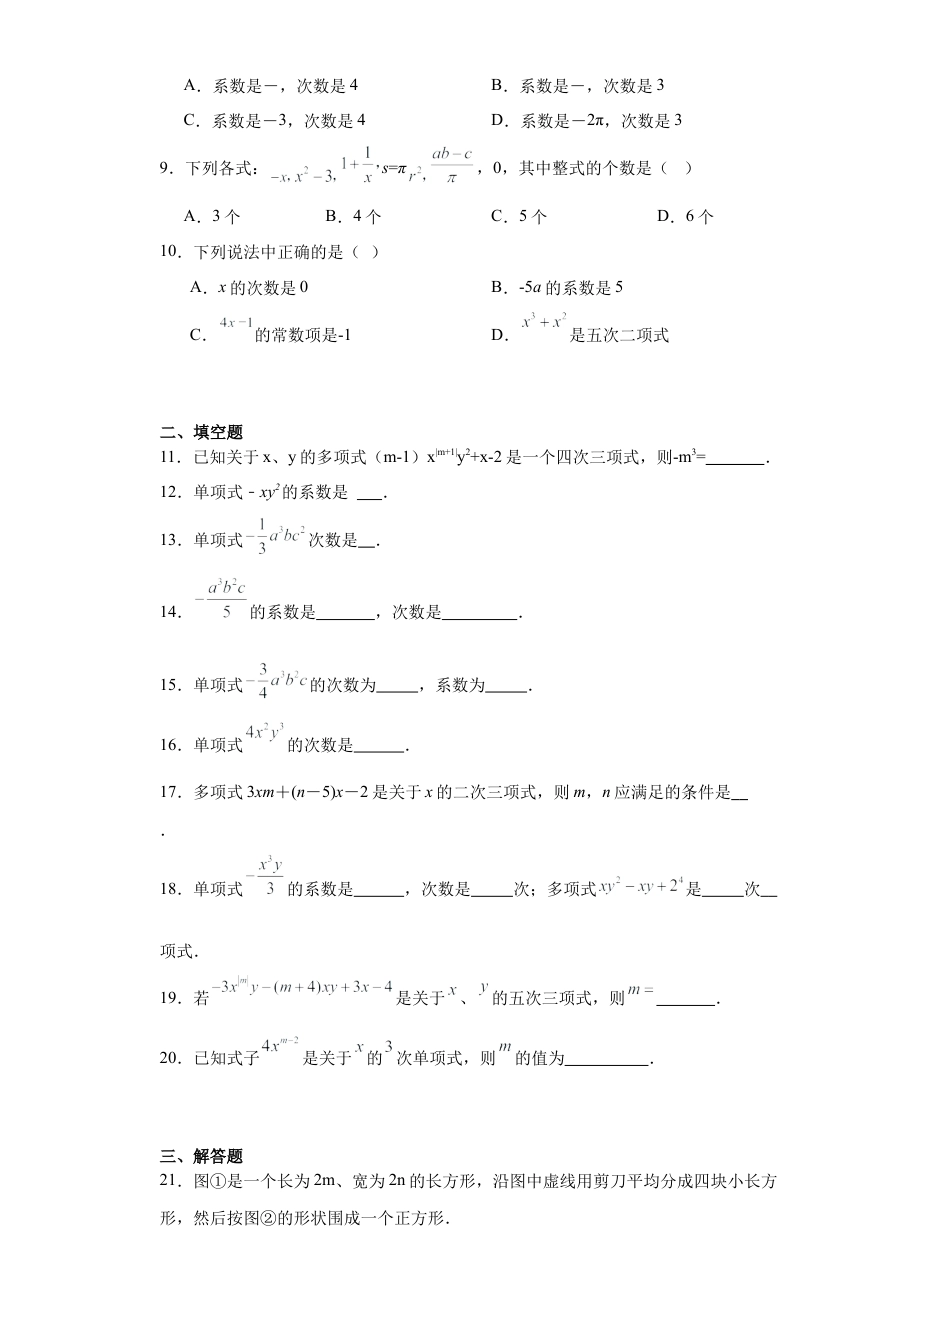 A．系数是－，次数是 4 B．系数是－，次数是 3
C．系数是－3，次数是 4 D．系数是－2π，次数是 3
9．下列各式：-x, x²-3, 1+1/x, s=πr², (ab-c)/π，0，其中整式的个数是（ ）
A．3 个 B．4 个 C．5 个 D．6 个
10．下列说法中正确的是（ ）
A．x 的次数是 0 B．-5a 的系数是 5
C．4x-1的常数项是-1 D．x³+x²是五次二项式
二、填空题
11．已知关于 x、y 的多项式（m-1）x^|m+1|y²+x-2 是一个四次三项式，则-m³=_______．
12．单项式﹣xy²的系数是 ___．
13．单项式-1/3a³bc²次数是__．
14．-a³b²c/5的系数是_______，次数是_________．
15．单项式-3/4a³b²c的次数为_____，系数为_____．
16．单项式4x²y³的次数是______．
17．多项式 3xm＋(n－5)x－2 是关于 x 的二次三项式，则 m，n 应满足的条件是__
．
18．单项式-x³y/3的系数是______，次数是_____次；多项式xy²-xy+2⁴是_____次__
项式．
19．若-3x^|m|y-(m+4)xy+3x-4是关于x、y的五次三项式，则m=_______．
20．已知式子4x^(m-2)是关于x的3次单项式，则m的值为__________．
三、解答题
21．图①是一个长为 2m、宽为 2n 的长方形，沿图中虚线用剪刀平均分成四块小长方
形，然后按图②的形状围成一个正方形．